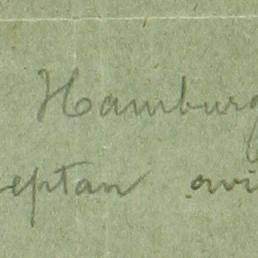 Hamburg
eptan avi